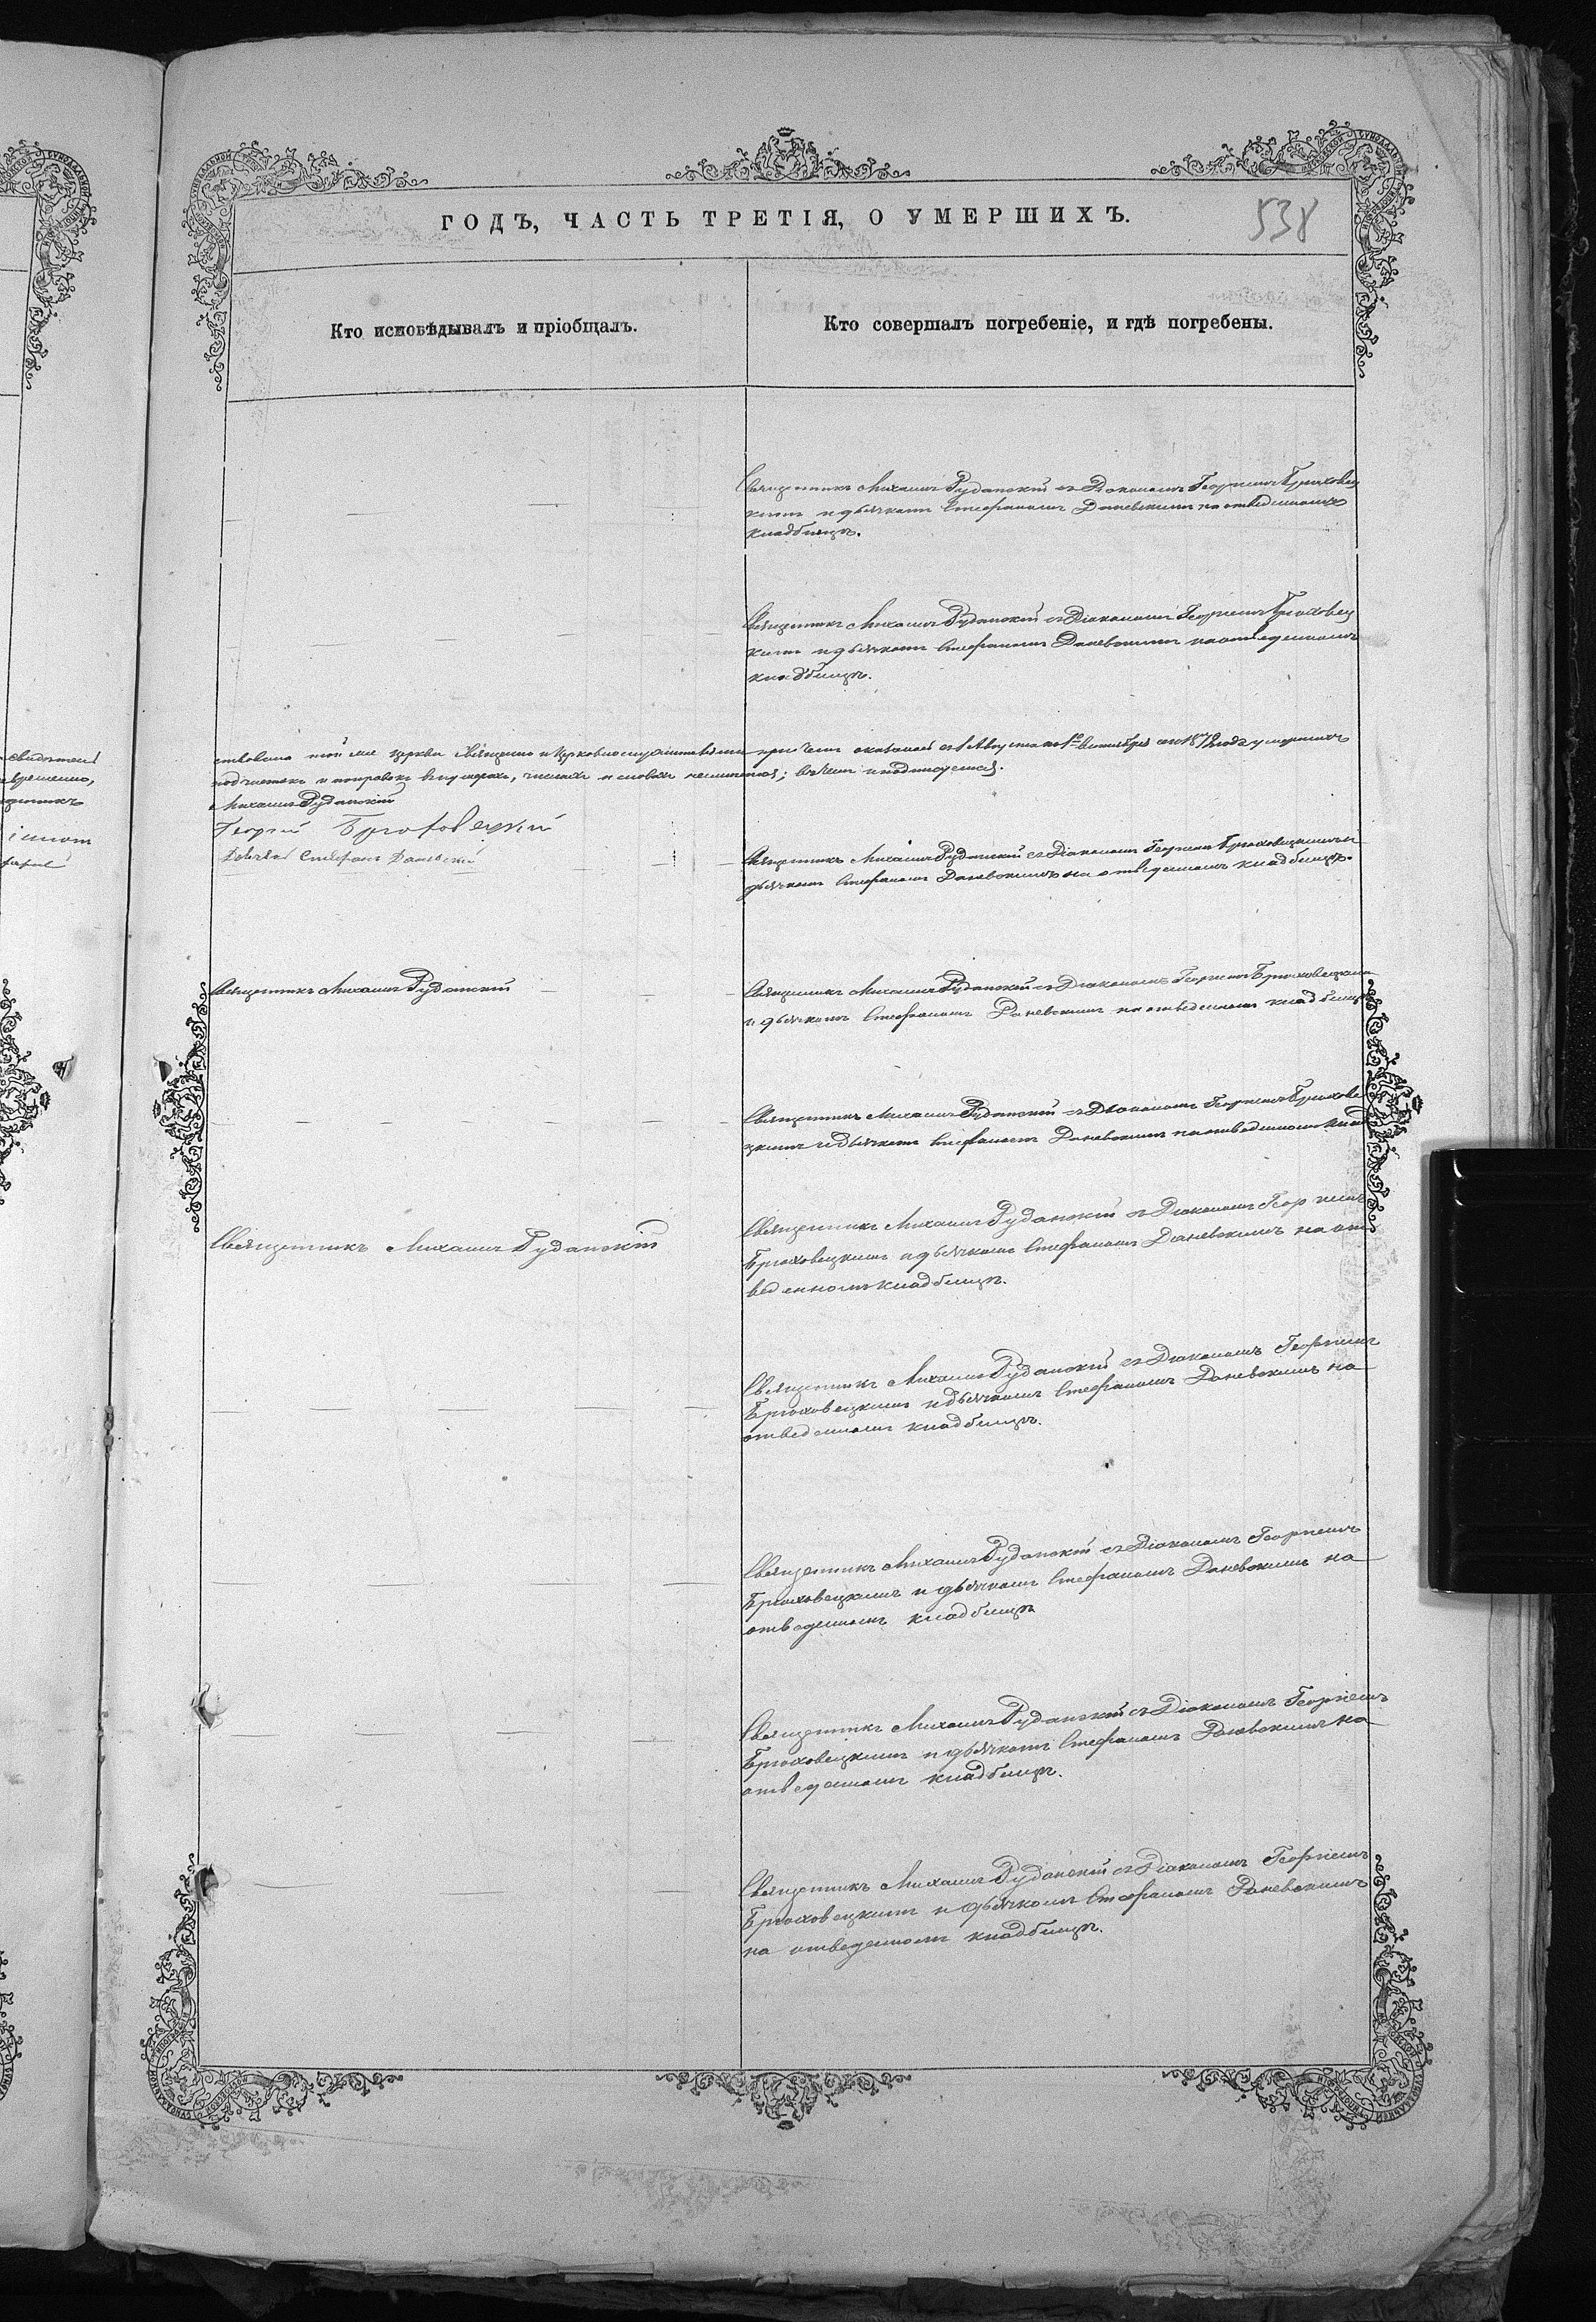 ГОДЪ, ЧАСТЬ ТРЕТІЯ, О УМЕРШИХЪ.
538
Кто исповѣдывалъ и пріобщалъ.
Кто совершалъ погребеніе, и гдѣ погребены.
Священникъ Михаилъ Руданскій съ Діакономъ Георгіемъ Брюховец
кимъ и дьячкомъ Стефаномъ Даневскимъ на отведенномъ
кладбищѣ.
Священникъ Михаилъ Руданскій съ Діакономъ Георгіемъ Брюховец
кимъ и дьячкомъ Стефаномъ Даневскимъ на отведенномъ
кладбищѣ.
той же церкви Священно и Церковнослужителями при чемъ
подчистокъ и поправокъ въ нумерахъ, числахъ и словахъ ; въ чемъ и подписуемся.
Михаилъ Руданскій
Георгій Брюховецкій
Дьячекъ Стефанъ Даневскій
Священникъ Михаилъ Руданскій съ Діакономъ Георгіемъ Брюховецкимъ и
дьячкомъ Стефаномъ Даневскимъ на отведенномъ кладбищѣ.
Священникъ Михаилъ Руданскій
Священникъ Михаилъ Руданскій съ Діакономъ Георгіемъ Брюховецкимъ
и дьячкомъ Стефаномъ Даневскимъ на отведенномъ кладбищѣ
Священникъ Михаилъ Руданскій съ Діакономъ Георгіемъ Брюхове
цкимъ и дьячкомъ Стефаномъ Даневскимъ на отведенномъ клад
Священникъ Михаилъ Руданскій
Священникъ Михаилъ Руданскій съ Діакономъ Георгіемъ
Брюховецкимъ и дьячкомъ Стефаномъ Даневскимъ на от
веденномъ кладбищѣ.
Священникъ Михаилъ Руданскій съ Діакономъ Георгіемъ
Брюховецкимъ и дьячкомъ Стефаномъ Даневскимъ на
отведенномъ кладбищѣ.
Священникъ Михаилъ Руданскій съ Діакономъ Георгіемъ
Брюховецкимъ и дьячкомъ Стефаномъ Даневскимъ на
отведенномъ кладбищѣ
Священникъ Михаилъ Руданскій съ Діакономъ Георгіемъ
Брюховецкимъ и дьячкомъ Стефаномъ Даневскимъ на
отведенномъ кладбищѣ.
Священникъ Михаилъ Руданскій съ Діакономъ Георгіемъ
Брюховецкимъ и дьячкомъ Стефаномъ Даневскимъ
на отведенномъ кладбищѣ.